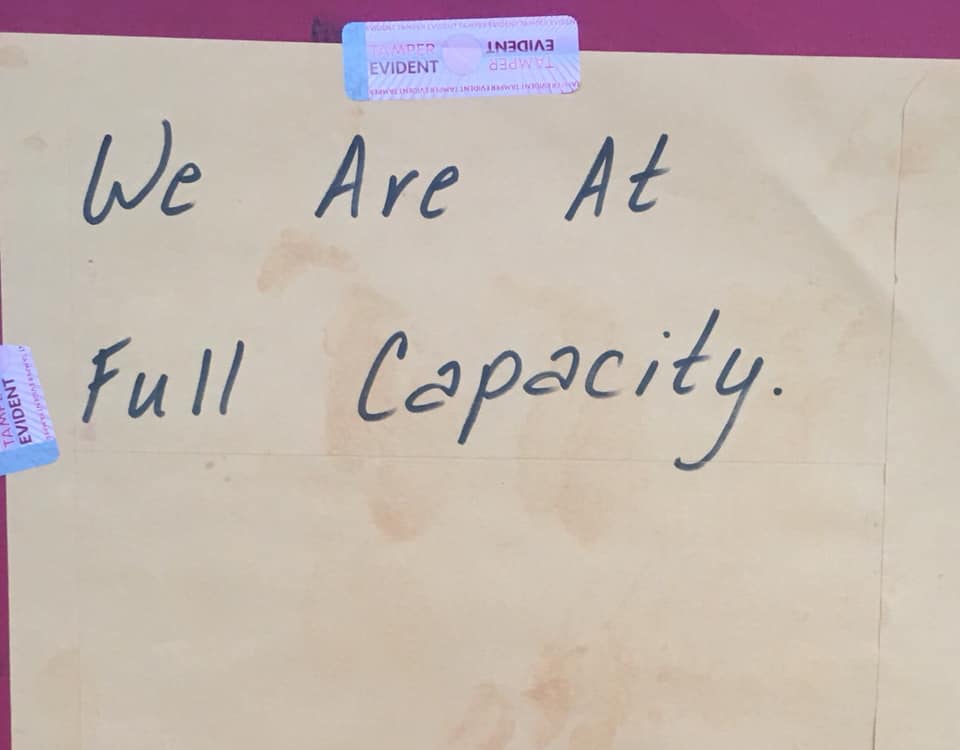 TAMPER
EVIDENT
TAMPER
EVIDENT
We Are At
Full Capacity.
EVIDENT